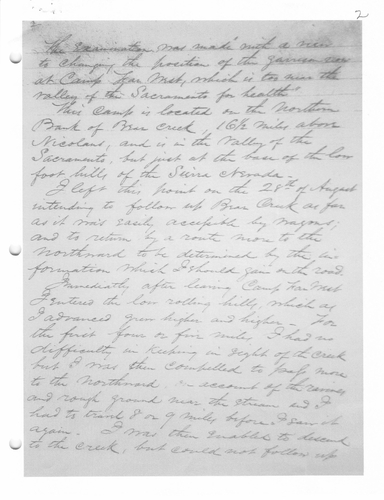 2
The Examination was made with a view
to changing the position of the garrison now
at Camp Far West, which is too near the
valley of the Sacramento for health
This Camp is located on the Northern
Bank of Bear Creek, 16½ miles above
Nicolaus, and is in the Valley of the
Sacramento, but just at the base of the low
foot hills of the Sierra Nevada.
I left this point on the 28th of August
intending to follow up Bear Creek as far
as it was easily accessible by wagons,
and to return by a route more to the
Northward to be determined by the in
formation which I should gain on the road
Immediately after leaving Camp Far West
I entered the low rolling hills, which as
I advanced grew higher and higher. For
the first four or five miles I had no
difficulty in keeping in sight of the creek
but I was then compelled to pass more
to the Northward on account of the ravines
and rough ground near the stream and I
had to travel 8 or 9 miles before I saw it
again. I was then enabled to descend
to the creek, but could not follow up